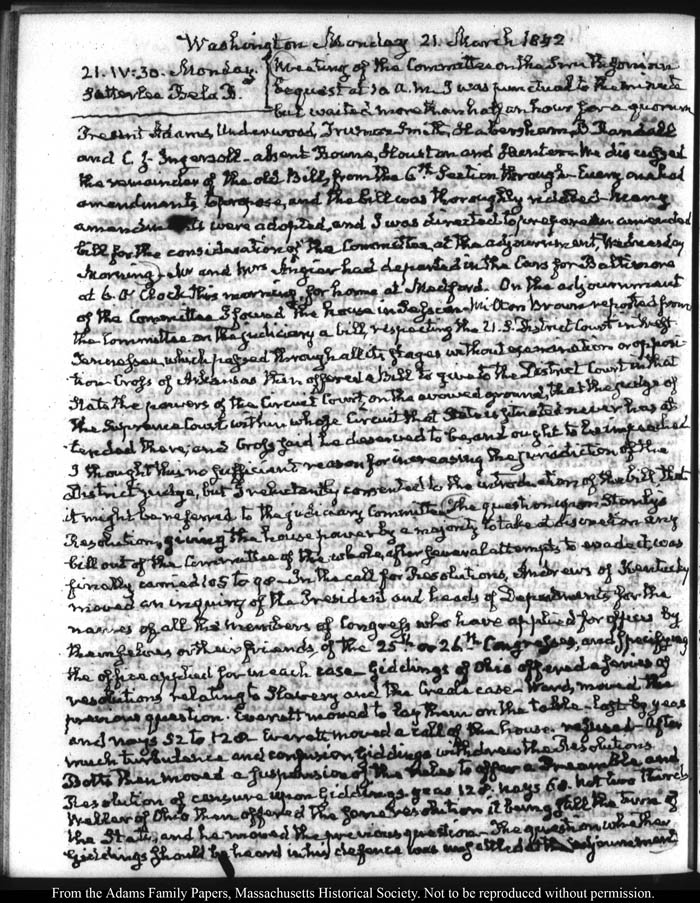 Washington Monday 21. March 1842
21. IV:30. Monday.
Satterlee Bela B.
Meeting of the Committee on the Smithsonian
bequest at 10 a.m. I was punctual to the minute
but waited more than half an hour for a quorum
Present Adams, Underwood, Truman Smith, Habersham, B. Randall
and C. J. Ingersoll — absent Bowne, Houston and Hunter — We discussed
the remainder of the old Bill, from the 6th Section through — Every one had
amendments to propose, and the bill was thoroughly — many
amendments were adopted, and I was directed to prepare an amended
bill for the consideration of the Committee, at the adjournment, Wednesday
Morning — Mr and Mrs Angier had departed in the Cars for Baltimore
at 6. O'Clock this morning, for home at Medford. On the adjournment
of the Committee I found the house in Session — Milton Brown reported from
the Committee on the judiciary a bill respecting the U.S. District Court in West
Tennessee, which passed through all its stages without examination or opposi
tion. Cross of Arkansas then offered a Bill to give to the District Court in that
State the powers of the Circuit Court, on the avowed ground, that the judge of
the Supreme Court within whose Circuit that State is situated never has at
tended there, and Cross said he deserved to be, and ought to be impeached
I thought this no sufficient reason for increasing the jurisdiction of the
District judge, but I reluctantly consented to the introduction of the bill that
it might be referred to the judiciary Committee. The question upon Stanly's
Resolution, giving the house power by a majority to take at discretion any
bill out of the Committee of the whole, after several attempts to evade it, was
finally carried 105 to 98 — In the call for Resolutions, Andrews of Kentucky
moved an inquiry of the President and heads of Departments for the
names of all the members of Congress who have applied for offices by
themselves or their friends, of the 25th or 26th Congresses, and specifying
the office applied for in each case — Giddings of Ohio offered a series of
resolutions relating to Slavery and the Creole case — Ward, moved the
previous question. Everett moved to lay them on the table — lost by yeas
and nays 52 to 125. Everett moved a call of the house. refused — After
much turbulence and confusion, Giddings withdrew the Resolutions.
Botts then moved a suspension of the rules to offer a Preamble and
Resolution of censure upon Giddings. yeas 128. nays 68. not two thirds
Weller of Ohio then offered the same resolution it being still the turn of
the State, and he moved the previous question — The question whether
Giddings should be heard in his defence was unsettled at the adjournment
From the Adams Family Papers, Massachusetts Historical Society. Not to be reproduced without permission.